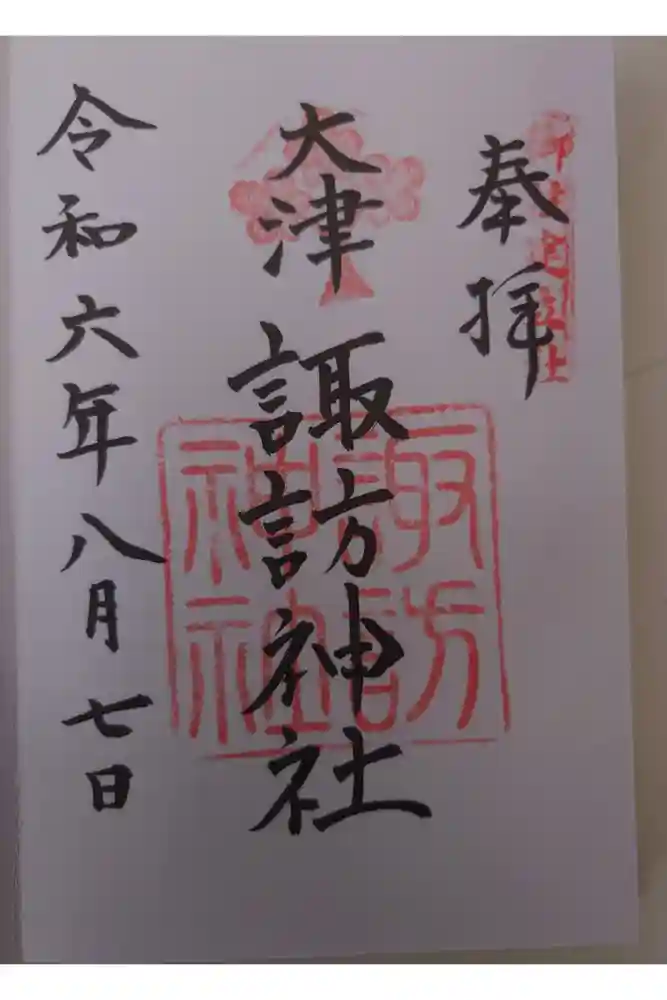 奉拝
大津諏訪神社
諏訪神社
令和六年八月七日